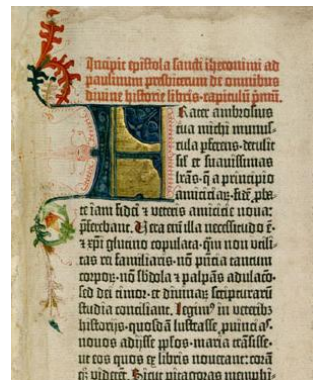 Incipit epistola sancti iheronimi ad
paulinum presbiterum de omnibus
divine historie libris·capitulū pmū.
Frater ambrosius
tua michi munus-
cula pferens·detulit
sił et suavissimas
lrās·q̄ a principio
amiciciaꝝ·fidē ꝓba-
te iam fidei ⁊ veteris amicicie noua:
pferebant. Vera eni illa necessitudo ē·
⁊ xpi glutino copulata·qm non vtili-
tas rei familiaris·nō pñcia tantum
corpoꝝ·nō sbdola ⁊ palpās adulacō·
sed dei timor·et diuinaꝝ scripturarū
studia conciliant. Legim⁹ in veteribꝫ
historijs·quosdā lustrasse ꝓuincias·
nouos adijsse pplos·maria trāsisse·
ut eos quos ex libris nouerant: corā
qꝫ viderēt. Sicut pitagoras memphi-